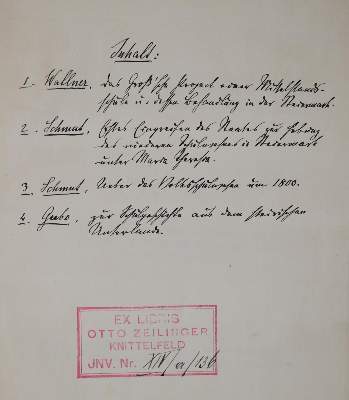 Inhalt:
1. Wallner, das Groß'sche Project einer Mittelstands-
schule u. dessen Behandlung in der Steiermark.
2. Schmut, Erstes Eingreifen des Staates zur Hebung
des niederen Schulwesens in Steiermark
unter Maria Theresia.
3. Schmut, Ueber das Volksschulwesen um 1800.
4. zur Schulgeschichte aus dem steirischen
Unterlande.
EX LIBRIS
OTTO ZEILINGER
KNITTELFELD
JNV. Nr. XIV/a/136